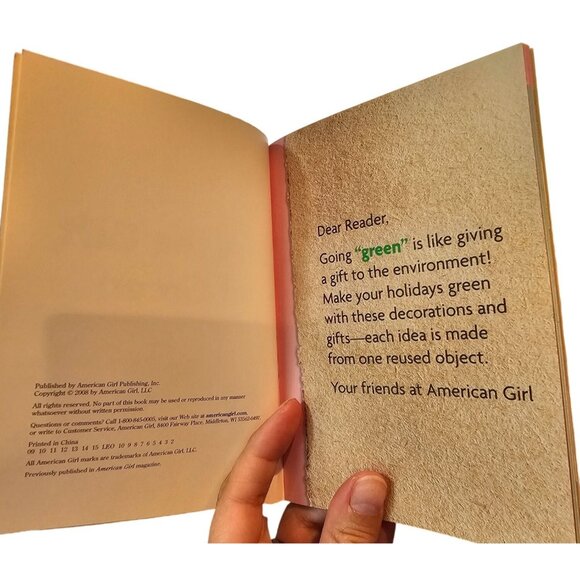 Published by American Girl Publishing, Inc.
Copyright © 2008 by American Girl, LLC
All rights reserved. No part of this book may be used or reproduced in any manner
whatsoever without written permission.
Questions or comments? Call 1-800-845-0005, visit our Web site at americangirl.com,
or write to Customer Service, American Girl, 8400 Fairway Place, Middleton, WI 53562-0497.
Printed in China
09 10 11 12 13 14 15 LEO 10 9 8 7 6 5 4 3 2
All American Girl marks are trademarks of American Girl, LLC.
Previously published in American Girl magazine.
Dear Reader,
Going "green" is like giving
a gift to the environment!
Make your holidays green
with these decorations and
gifts—each idea is made
from one reused object.
Your friends at American Girl